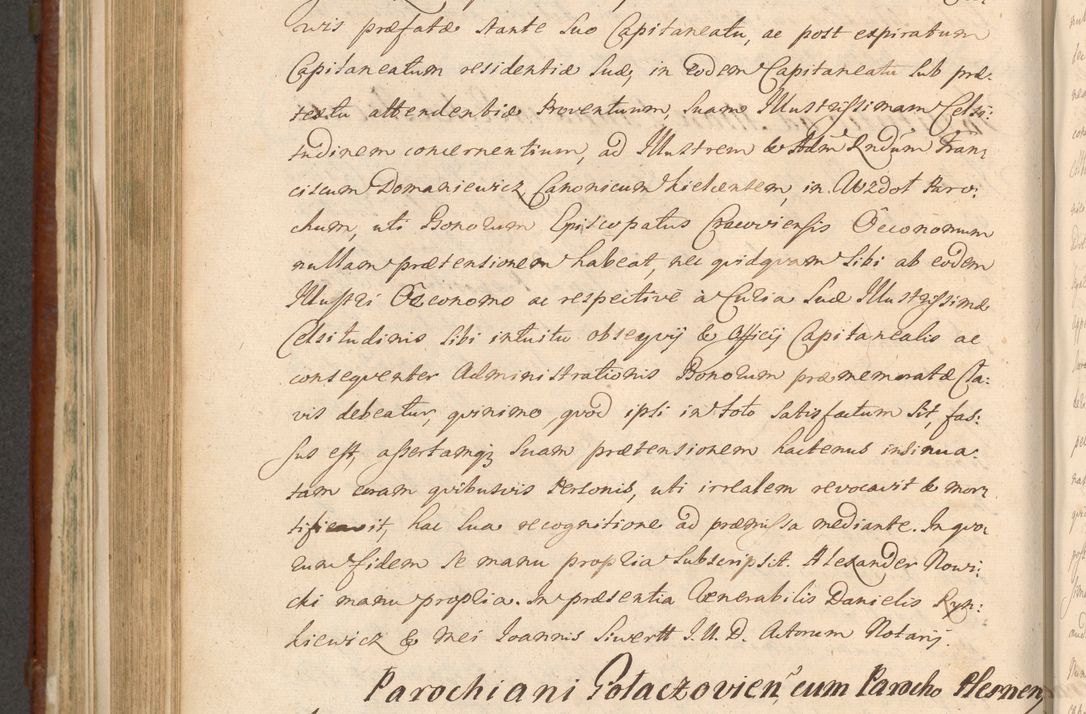 vis præfatæ stante suo Capitaneatu, ac post expiratum
Capitaneatum residentiæ suæ, in eodem Capitaneatu sub præ:
textu attendentiæ Proventuum, suam Illustrissimam Celsi:
tudinem concernentium, ad Illustrem & Adm Rndum Fran:
ciscum Domaniewicz Canonicum Kielcensem, in Wzdoł Paro:
chum, uti Bonorum Episcopatus Cracoviensis Oeconomum
nullam prætensionem habeat, nec quidquam sibi ab eodem
Illustri Oeconomo ac respective a Curia suæ Illustrissimæ
Celsitudinis sibi intuitu obsequij & Officij Capitanealis ac
consequenter Administrationis Bonorum præmemoratæ Cla:
vis debeatur, quinimo, quod ipsi in toto satisfactum sit, fas:
sus est, assertamq; suam prætensionem hactenus insinua:
tam coram quibusvis Personis, uti irrealem revocavit & mor:
tificavit, hac sua recognitione ad præmissa mediante. In quo:
rum fidem se manu propria subscripsit. Alexander Nowi:
cki manu propria. In præsentia Venerabilis Danielis Ryn:
kiewicz & mei Joannis Siwertt J.U.D. Actorum Notarij.
Parochiani Gołaczovien, cum Parocho